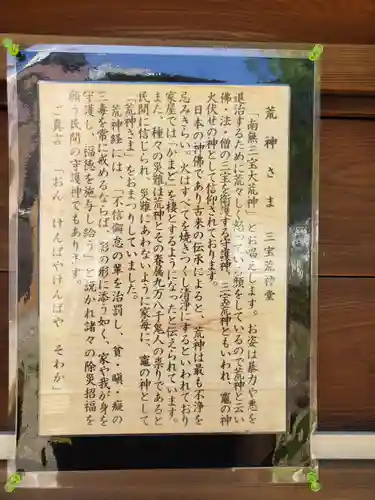 荒神さま 三宝荒神堂
「南無三宝大荒神」とお唱えします。お姿は暴力や悪を
退治するために荒々しく焔の逆い顔をしているので荒神と云い
佛・法・僧の三宝を衛護する守護神、三宝荒神ともいわれ、竈の神
火伏せの神として信仰されております。
日本の神佛であり古来の伝承によると、荒神は最も不浄を
忌みきらい、火はすべてを焼きつくし清浄にするといわれており
家屋では「かまど」を棲とするようになったと伝えられています。
また、種々の災難は荒神とその眷属九万八千鬼人の祟りであると
民間に信じられ、災難にあわないように家毎に、竈の神として
「荒神さま」をおまつりしていました。
荒神経には、「不信懈怠の輩を治罰し、貧・瞋・癡の
三毒を常に戒めるならば、影の形に添う如く、家や我が身を
守護し、福徳を施与し給う」と説かれ諸々の除災招福を
願う民間の守護神でもあります。
ご真言 「おん けんばやけんばや そわか」